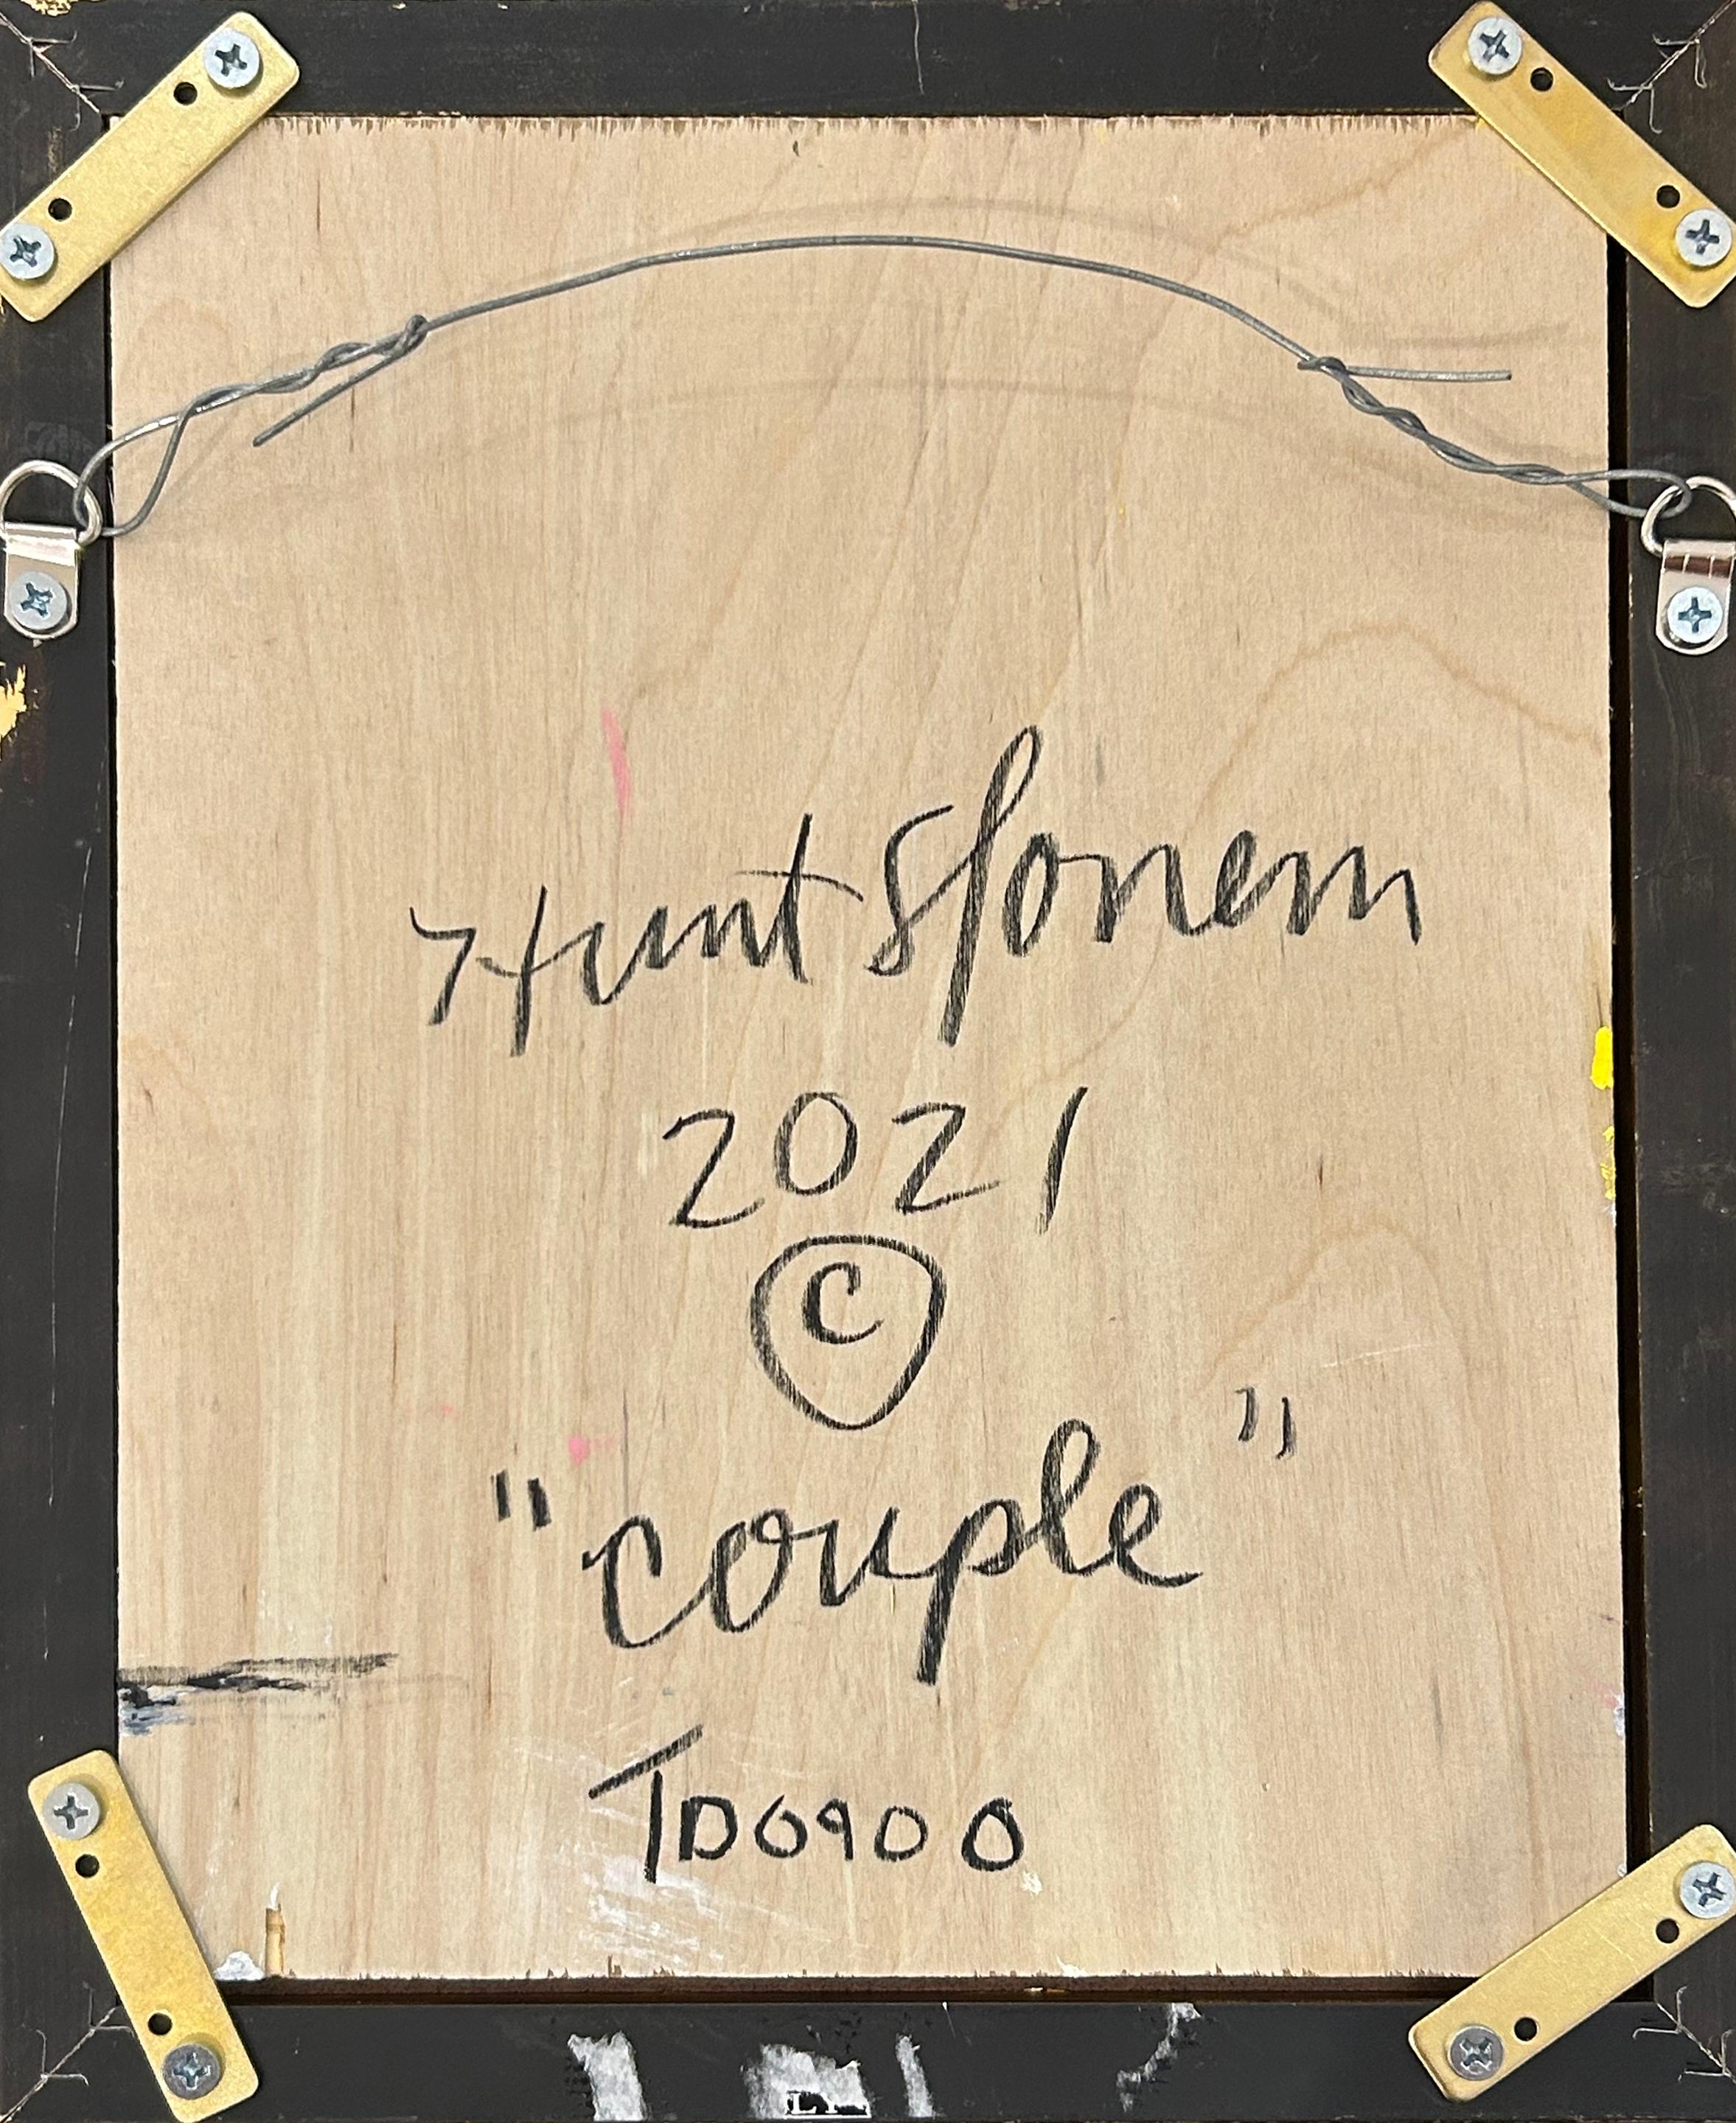 Hunt Slonem
2021
©
"couple"
TD0900